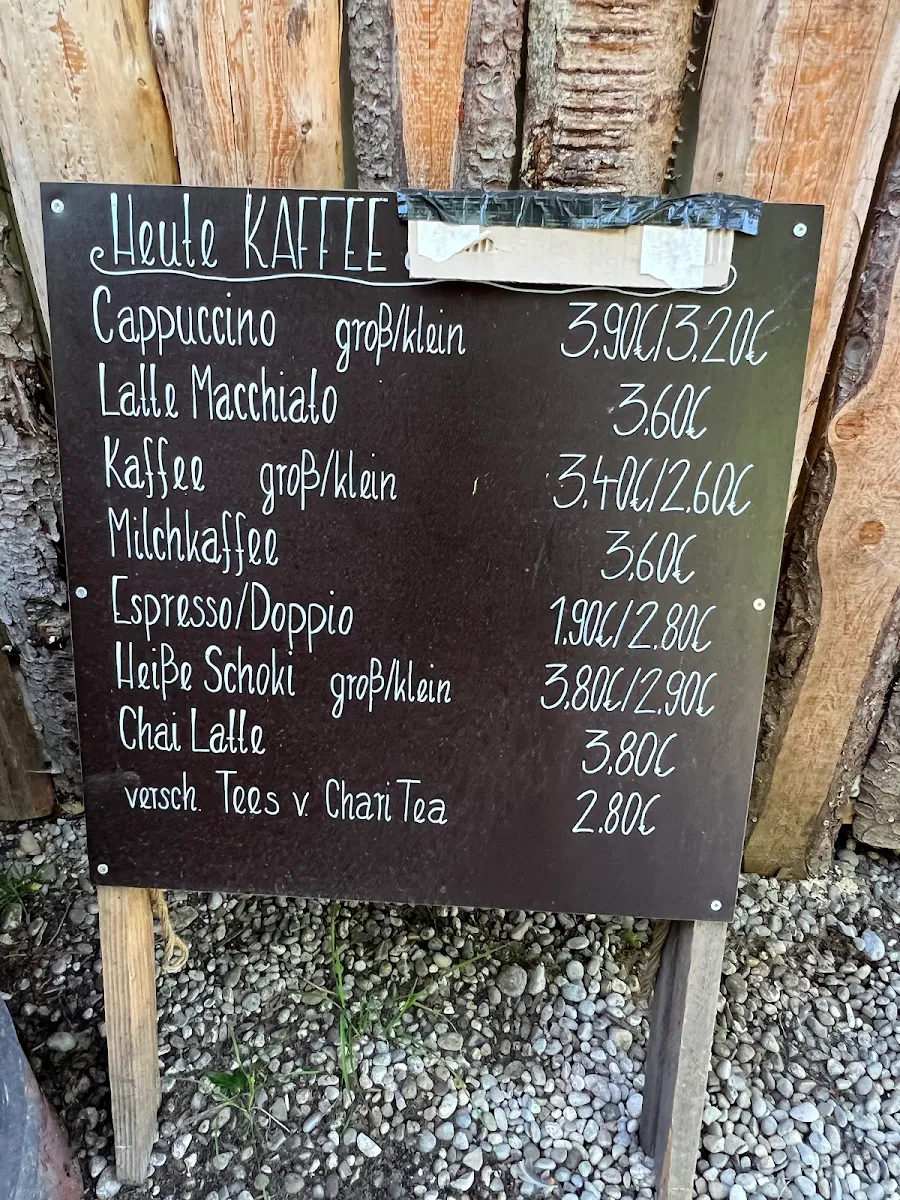 Heute KAFFEE
Cappuccino groß/klein 3,90€/3,20€
Latte Macchiato 3,60€
Kaffee groß/klein 3,40€/2,60€
Milchkaffee 3,60€
Espresso/Doppio 1,90€/2.80€
Heiße Schoki groß/klein 3,80€/2,90€
Chai Latte 3,80€
versch. Tees v. ChariTea 2.80€